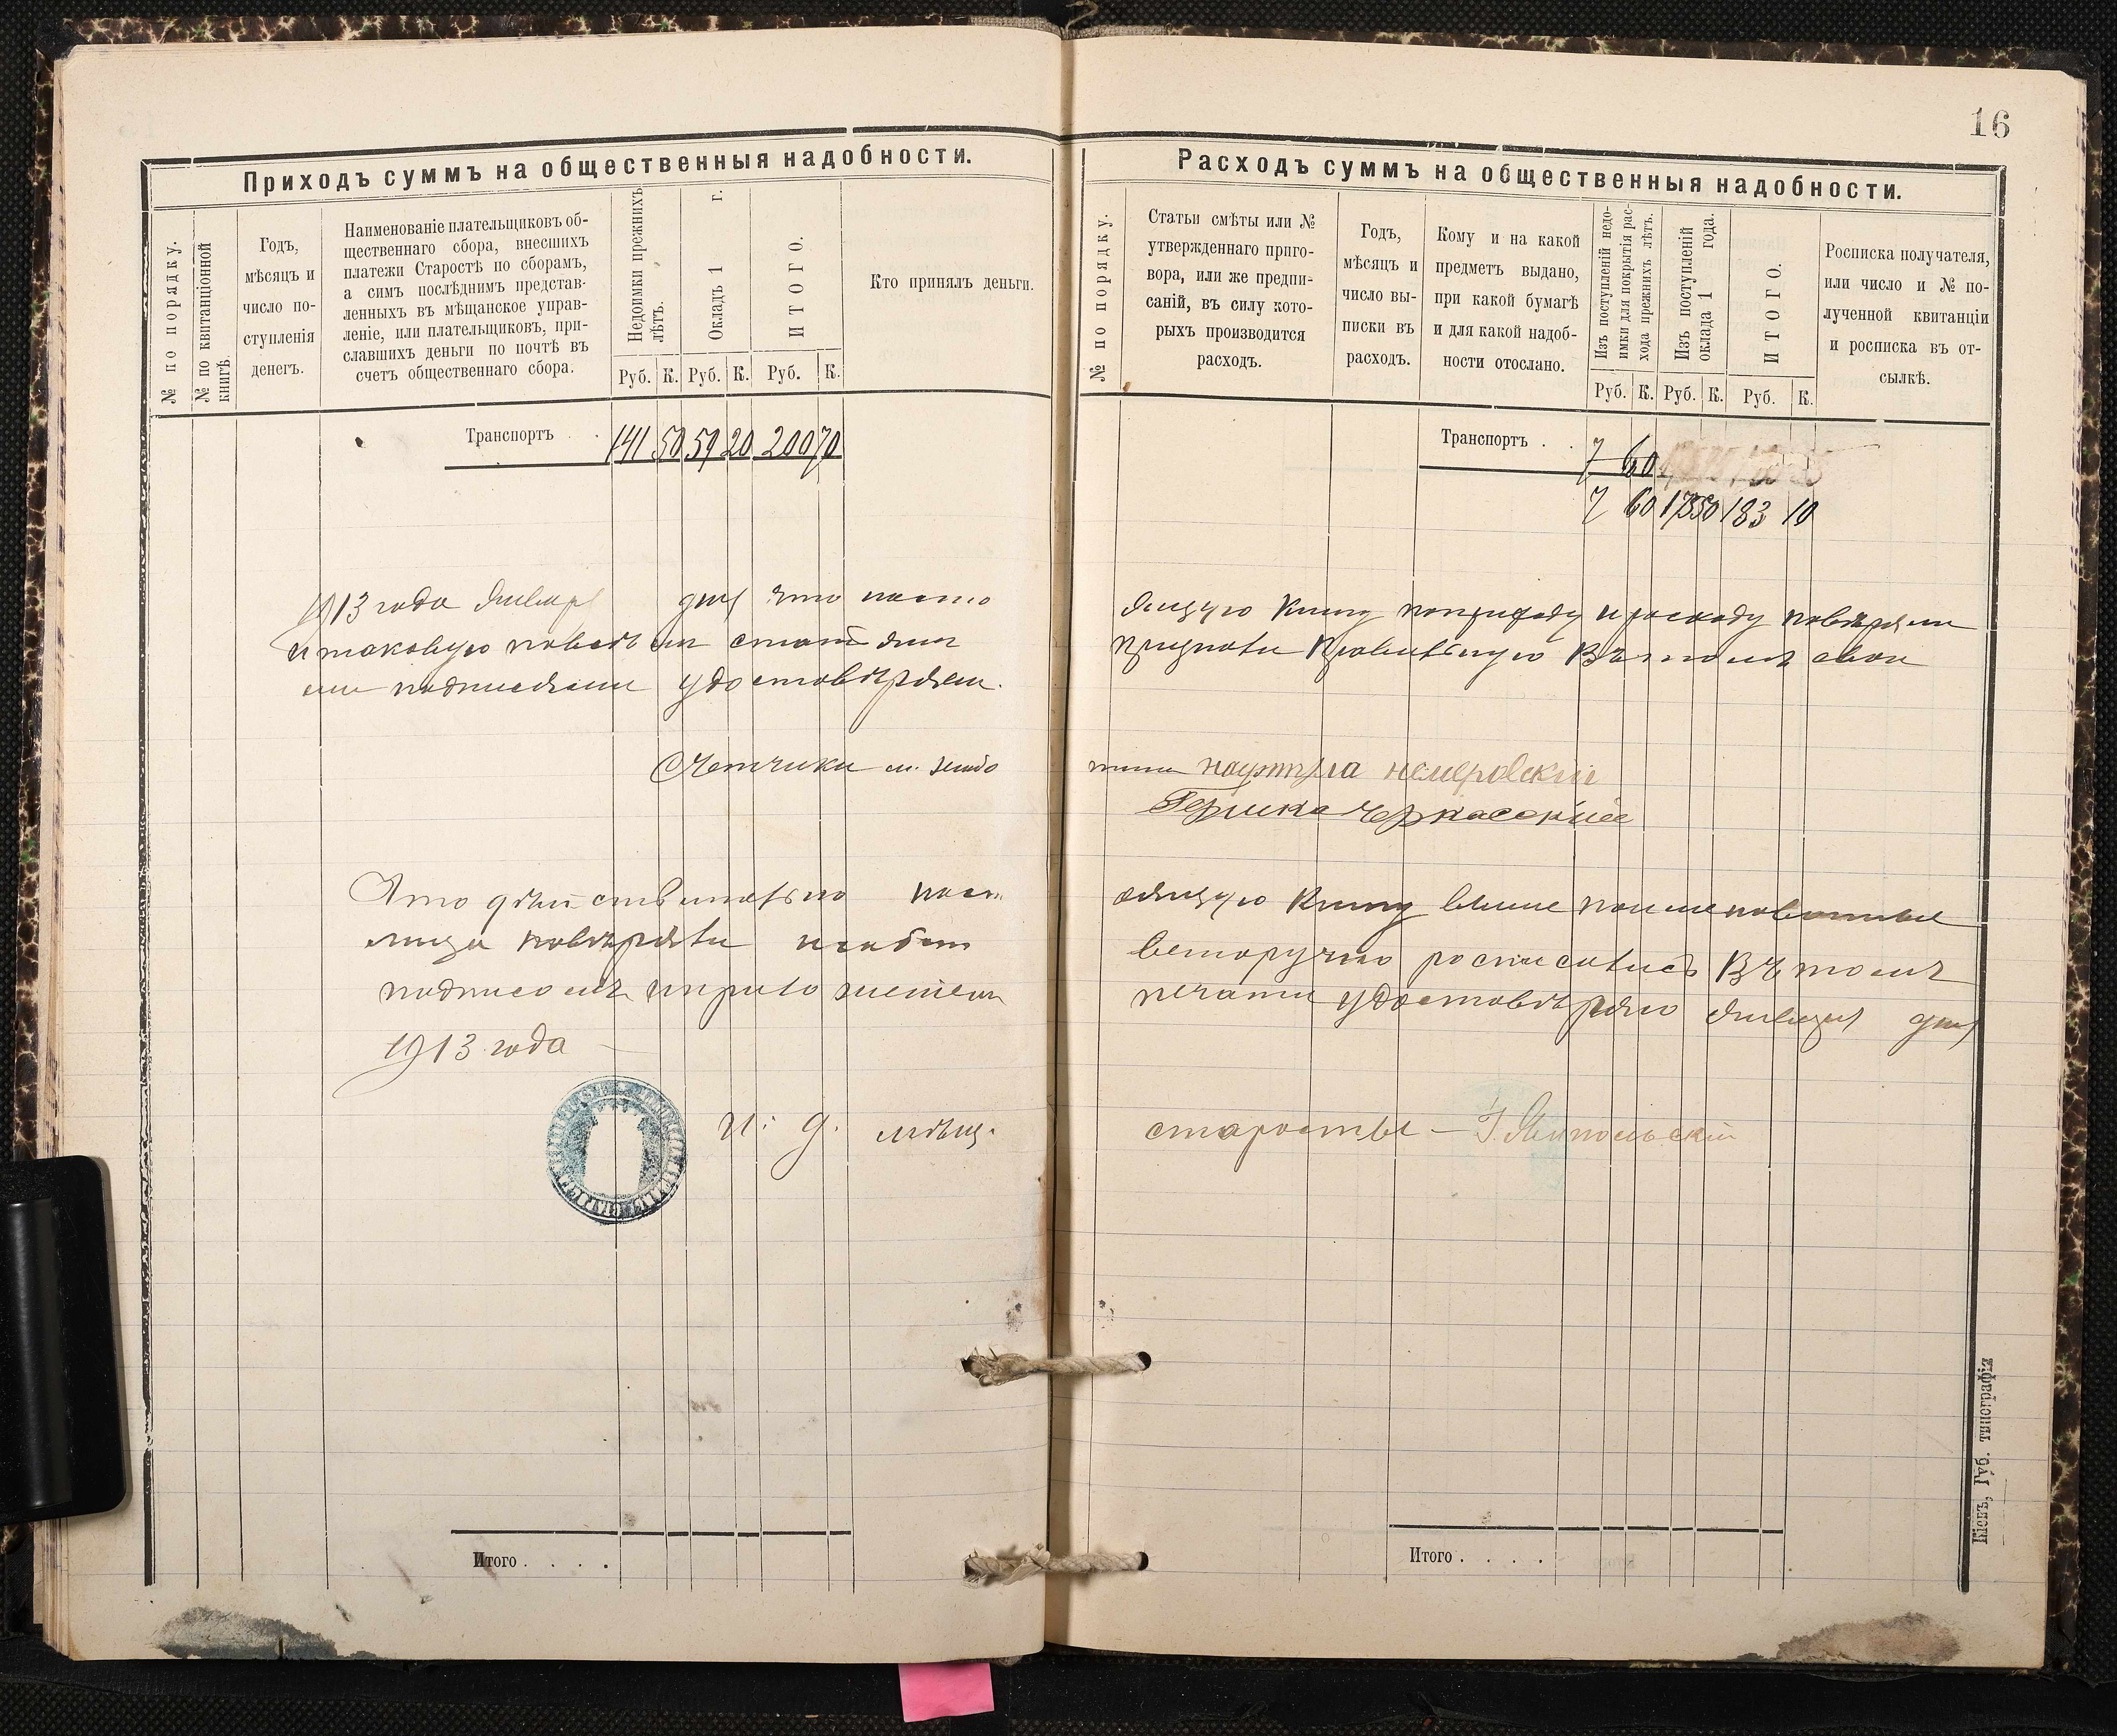 16
Приходъ суммъ на общественныя надобности.
№ по порядку.
№ по квитанціонной книгѣ.
Годъ,
мѣсяцъ и
число по-
ступленія
денегъ.
Наименованіе плательщиковъ об-
щественнаго сбора, внесшихъ
платежи Старостѣ по сборамъ,
а симъ послѣднимъ представ-
ленныхъ въ мѣщанское управ-
леніе, или плательщиковъ, при-
славшихъ деньги по почтѣ въ
счетъ общественнаго сбора.
Недоимки прежнихъ
лѣтъ.
Окладъ 1 г.
ИТОГО.
Кто принялъ деньги.
Руб. К. Руб. К. Руб. К.
Транспортъ . . 141 50 59 20 200 70
1913 года Января дня что насто
и таковую
ми подписями удостовѣряем.
Счетчики
Что дѣйствительно наст
лица повѣряли
подписомъ и приложеніем
1913 года
И. д. мѣщ.
Итого . . . .
Расходъ суммъ на общественныя надобности.
№ по порядку.
Статьи смѣты или №
утвержденнаго приго-
вора, или же предпи-
саній, въ силу кото-
рыхъ производится
расходъ.
Годъ,
мѣсяцъ и
число вы-
писки въ
расходъ.
Кому и на какой
предметъ выдано,
при какой бумагѣ
и для какой надоб-
ности отослано.
Изъ поступленій недо-
имки для покрытія рас-
хода прежнихъ лѣтъ.
Изъ поступленій
оклада 1 года.
ИТОГО.
Росписка получателя,
или число и № по-
лученной квитанціи
и росписка въ от-
сылкѣ.
Руб. К. Руб. К. Руб. К.
Транспортъ . . 7 60
7 60 175 50 183 10
ящую книгу по приходу и расходу повѣряли
признали правильную въ томъ свои
Черкасскій
оящую книгу выше поименованные
росписались въ томъ
печати удостовѣряю Января дня
старосты —
Итого . . . .
Кіевъ, Губ. типографія